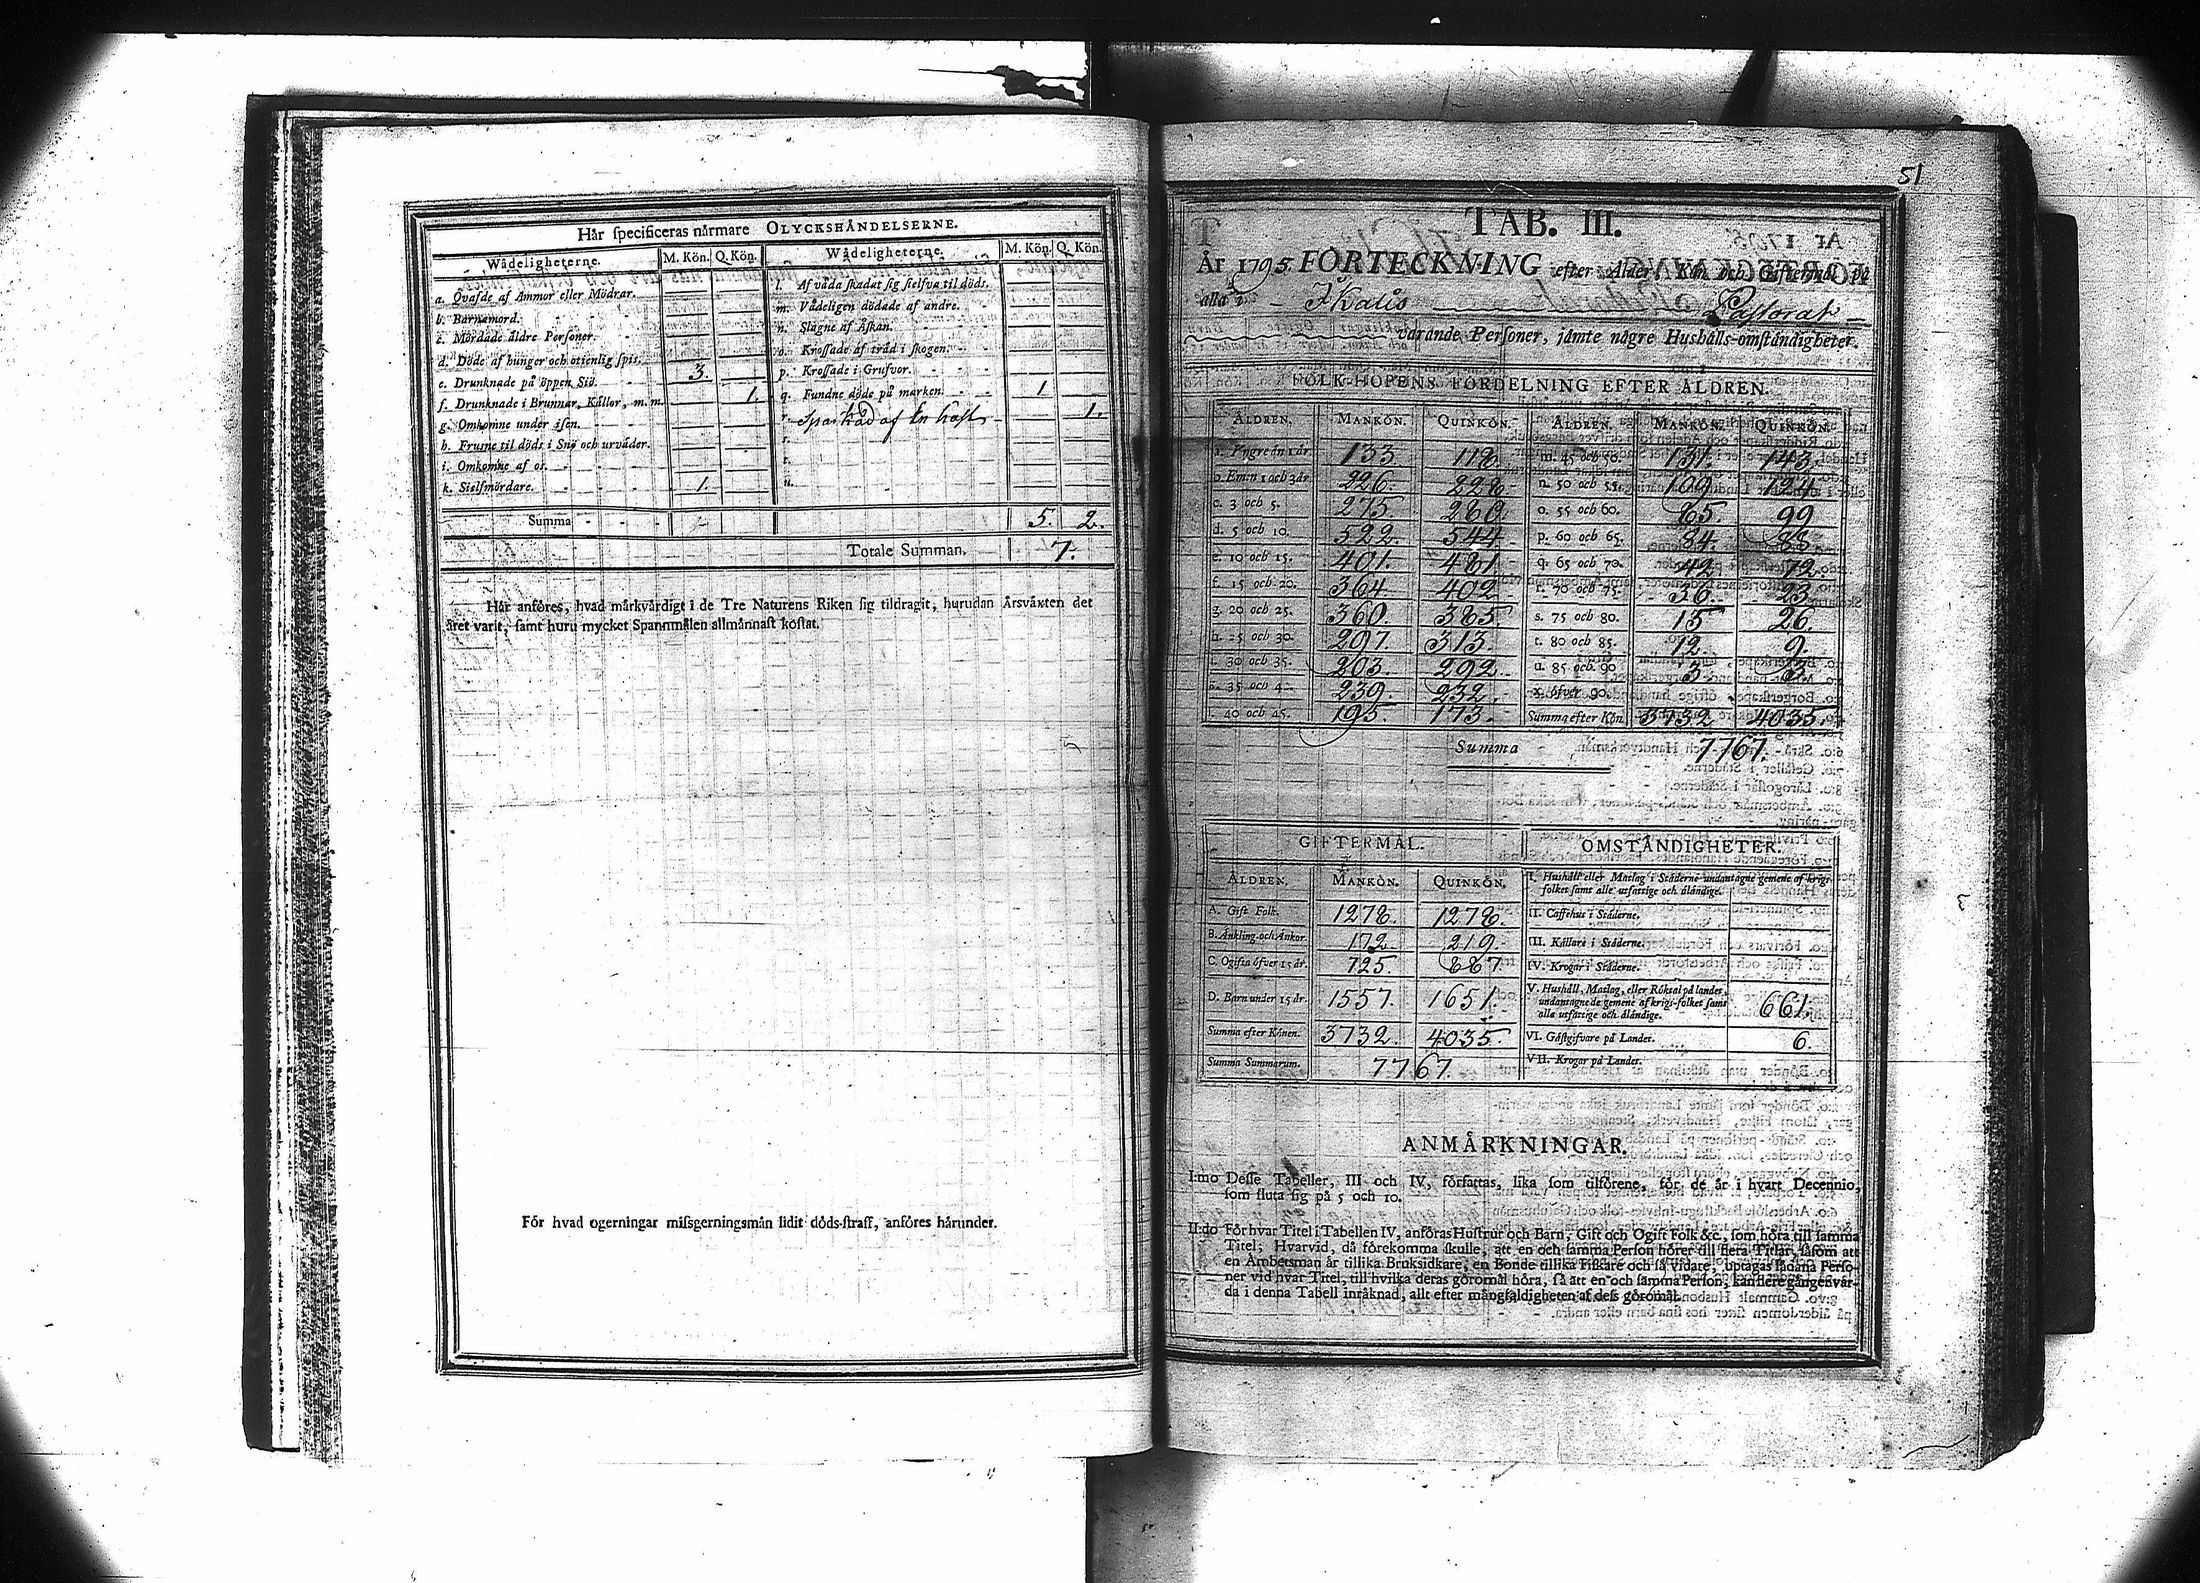 Hår specificeras nårmare OLYCKSHÅNDELSERNE.
Wådeligheterne. M. Kön. Q. Kön. Wådeligheterne. M. Kön. Q. Kön.
a. Qvafde af Ammor eller Mödrar.
b. Barnamord.
c. Mördade åldre Personer.
d. Döde af hunger och otienlig spis.
e. Drunknade på öppen Siö. 3.
f. Drunknade i Brunnar, Kållor, m.m. 1.
g. Omkomne under isen.
h. Frusne til döds i Snö och urvåder.
i. Omkomne af os.
k. Sielfmördare. 1.
l. Af våda skadat sig sielfva til döds.
m. Vådeligen dödade af andre.
n. Slagne af Åskan.
o. Krossade af tråd i skogen.
p. Krossade i Grufvor.
q. Fundne döde på marken. 1
r. Sparkad af en håst 1.
s.
t.
u.
Summa 5. 2.
Totale Summan. 7.
Hår anföres, hvad mårkvårdigt i de Tre Naturens Riken sig tildragit, hurudan Årsvåxten det
året varit, samt huru mycket Spannmålen allmånnast kostat.
För hvad ogerningar missgerningsmån lidit döds-straff, anföres hårunder.
51
TAB. III.
År 1795. FÖRTECKNING efter Ålder, Kön och Giftermål på
alla i Kalis Pastorat
varande Personer, jåmte någre Hushålls-omståndigheter.
FOLK-HOPENS FÖRDELNING EFTER ÅLDREN.
ÅLDREN. MANKÖN. QUINKÖN. ÅLDREN. MANKÖN. QUINKÖN.
a. Yngre ån 1 år 133 118 m. 45 och 50. 131. 143.
b. Em:n 1 och 3 år 226. 228. n. 50 och 55. 109. 124.
c. 3 och 5. 275. 260. o. 55 och 60. 85. 99
d. 5 och 10. 522. 544. p. 60 och 65. 84. 88.
e. 10 och 15. 401. 481. q. 65 och 70. 42. 72.
f. 15 och 20. 364. 402. r. 70 och 75. 36. 23.
g. 20 och 25. 360. 385. s. 75 och 80. 15 26.
h. 25 och 30. 297. 313. t. 80 och 85. 12. 9.
i. 30 och 35. 203. 292. u. 85 och 90 3. 3.
k. 35 och 40 239. 232. x. öfver 90.
40 och 45. 195. 173. Summa efter Kön. 3732 4035.
Summa 7767.
GIFTERMÅL. OMSTÅNDIGHETER.
ÅLDREN. MANKÖN. QUINKÖN.
A. Gift Folk. 1278. 1278.
B. Ånkling. och Ånkor. 172. 219.
C. Ogifta öfver 15 år. 725. 887.
D. Barn under 15 år. 1557. 1651.
Summa efter Könen. 3732. 4035.
Summa Summarum. 7767.
I. Hushåll eller Matlag i Ståderne undantagne gemene af krigs-
folket samt alle utfattige och ålåndige.
II. Caffehus i Ståderne.
III. Kållare i Ståderne.
IV. Krogar i Ståderne.
V. Hushåll, Matlag, eller Röksal på landet,
undantagne de gemene af krigs-folket samt
alla utfattige och ålåndige. 661.
VI. Gåstgifvare på Landet. 6.
VII. Krogar på Landet.
ANMÅRKNINGAR.
I:mo Desse Tabeller, III och IV, författas, lika som tilförene, för de år i hvart Decennio,
som sluta sig på 5 och 10.
II:do För hvar Titel i Tabellen IV, anföras Hustrur och Barn, Gift och Ogift Folk &c., som höra till samma
Titel; Hvarvid, då förekomma skulle, att en och samma Person hörer till flera Titlar, såsom att
en Åmbetsman år tillika Bruksidkare, en Bonde tillika Fiskare och så vidare, uptagas sådana Perso-
ner vid hvar Titel, till hvilka deras göromål höra, så att en och samma Person, kan flere gånger vår-
da i denna Tabell inråknad, allt efter mångfaldigheten af dess göromål.